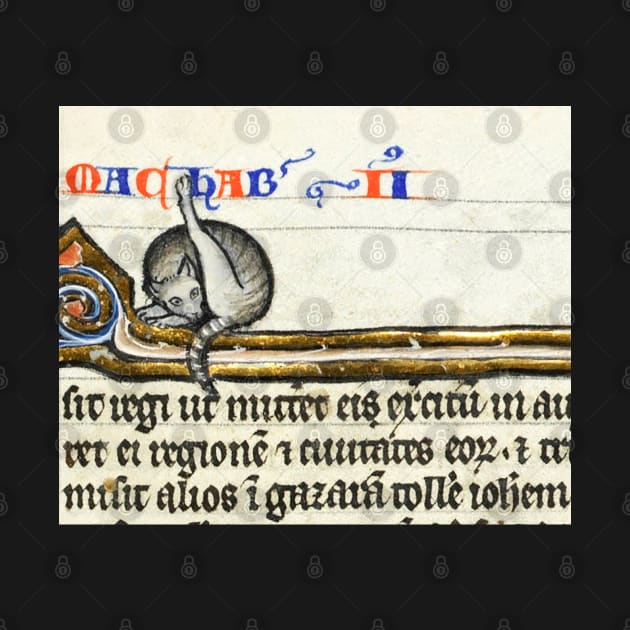 MACHAB' II
sit regi ut mittet eis excitū in au
ret ei regionē ⁊ ciuitates eoꝝ. ⁊ tr
misit alios ī gazarā tollē iohem